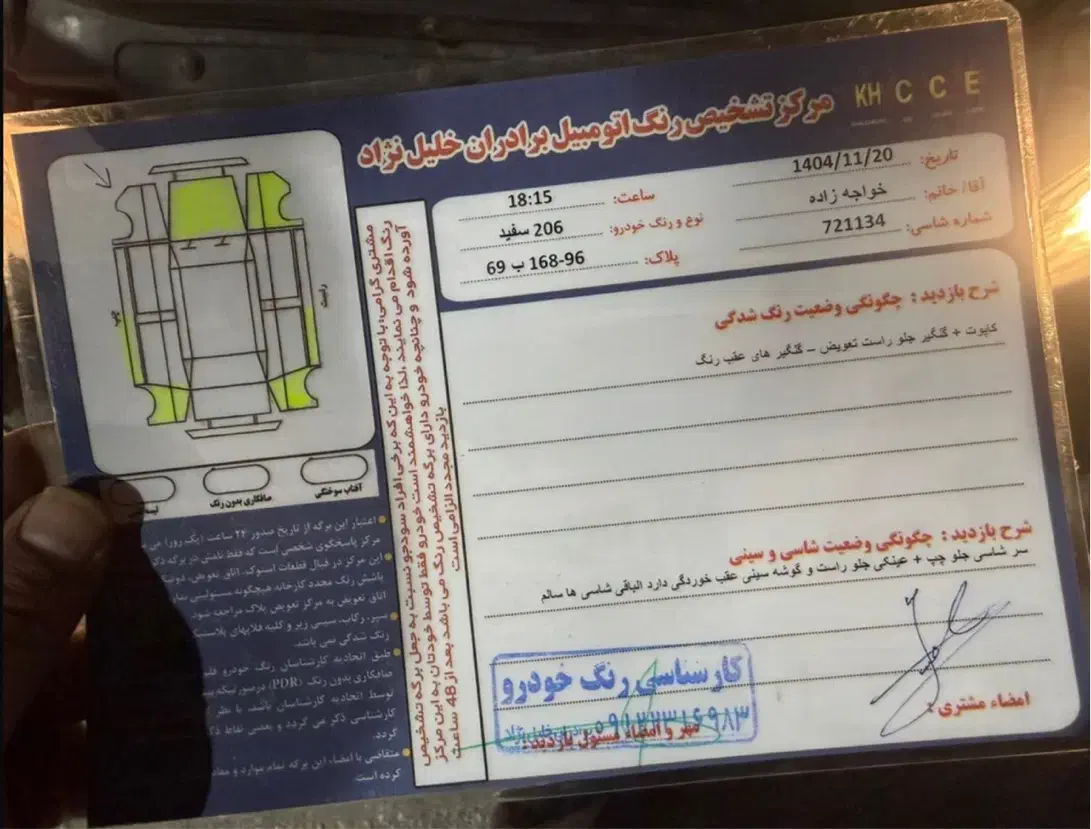 KH C C E
مرکز تشخیص رنگ اتومبیل برادران خلیل نژاد
تاریخ: 1404/11/20
ساعت: 18:15
آقا/خانم: خواجه زاده
نوع و رنگ خودرو: 206 سفید
شماره شاسی: 721134
پلاک: 96-168 ب 69
شرح بازدید : چگونگی وضعیت رنگ شدگی
کاپوت + گلگیر جلو راست تعویض – گلگیر های عقب رنگ
شرح بازدید : چگونگی وضعیت شاسی و سینی
سر شاسی جلو چپ + عینکی جلو راست و گوشه سینی عقب خوردگی دارد الباقی شاسی ها سالم
امضاء مشتری :
مهر و امضاء مسئول بازدید :
کارشناسی رنگ خودرو
چپ
راست
آفتاب سوختگی
صافکاری بدون رنگ
مشتری گرامی: با توجه به این که برخی افراد سودجو نسبت به جعل برگه تشخیص
رنگ اقدام می نمایند ،لذا خواهشمند است خودرو فقط توسط خودتان به این مرکز
آورده شود و چنانچه خودرو دارای برگه تشخیص رنگ می باشد بعد از 48 ساعت
بازدید مجدد الزامی است
اعتبار این برگه از تاریخ صدور ۲۴ ساعت (یک روز) می
مرکز پاسخگوی شخصی است که فقط نامش در برگه
این مرکز در قبال قطعات استوک، اتاق تعویض،
پاشش رنگ مجدد کارخانه هیچگونه مسئولیتی
اتاق تعویض به مرکز تعویض پلاک مراجعه شود
سپر، رکاب، سینی زیر و کلیه فلاپهای
رنگ شدگی نمی باشد.
طبق اتحادیه کارشناسان رنگ خودرو
صافکاری بدون رنگ (PDR) درصورتیکه
توسط اتحادیه کارشناسان باشد، با نظر
کارشناسی ذکر می گردد و بعضی نقاط
گردد.
متقاضی با امضاء این برگه تمام موارد و
کرده است.